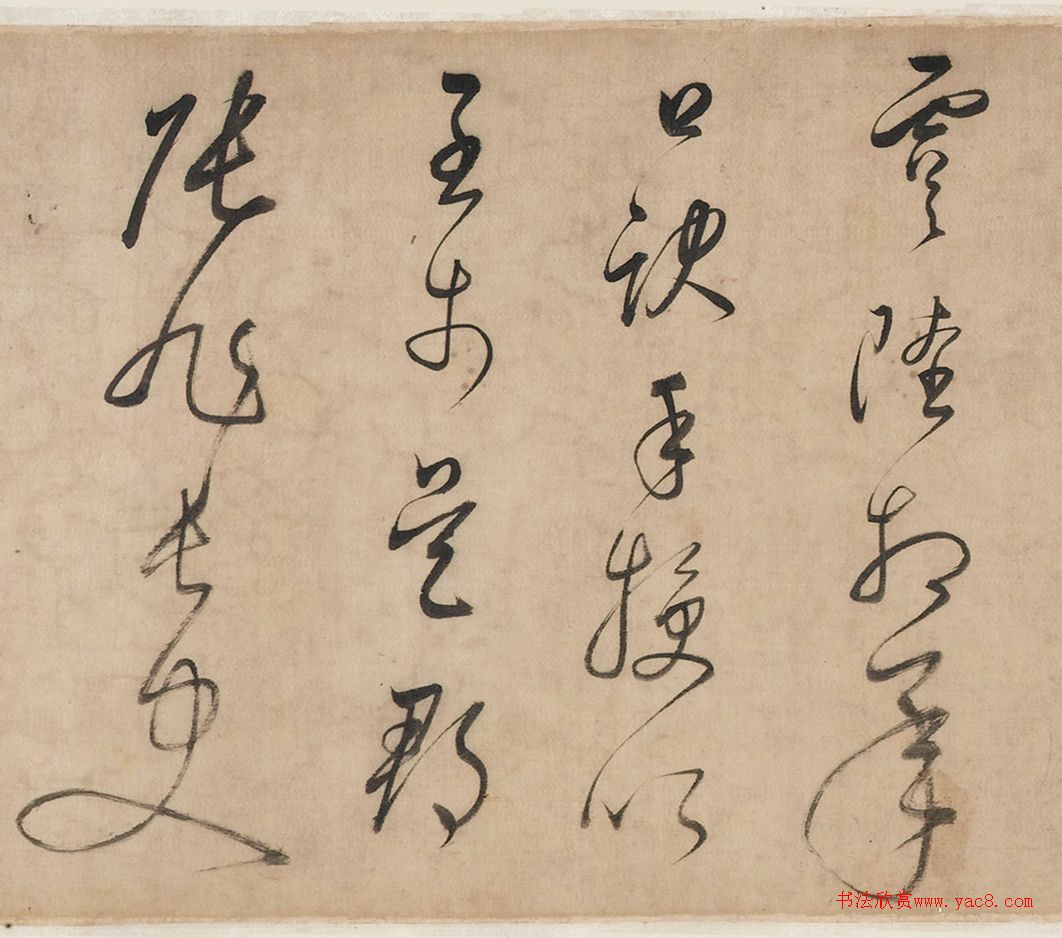 虞陸相承
口訣手授以
至於吳郡
張旭長史
书法欣赏www.yac8.com